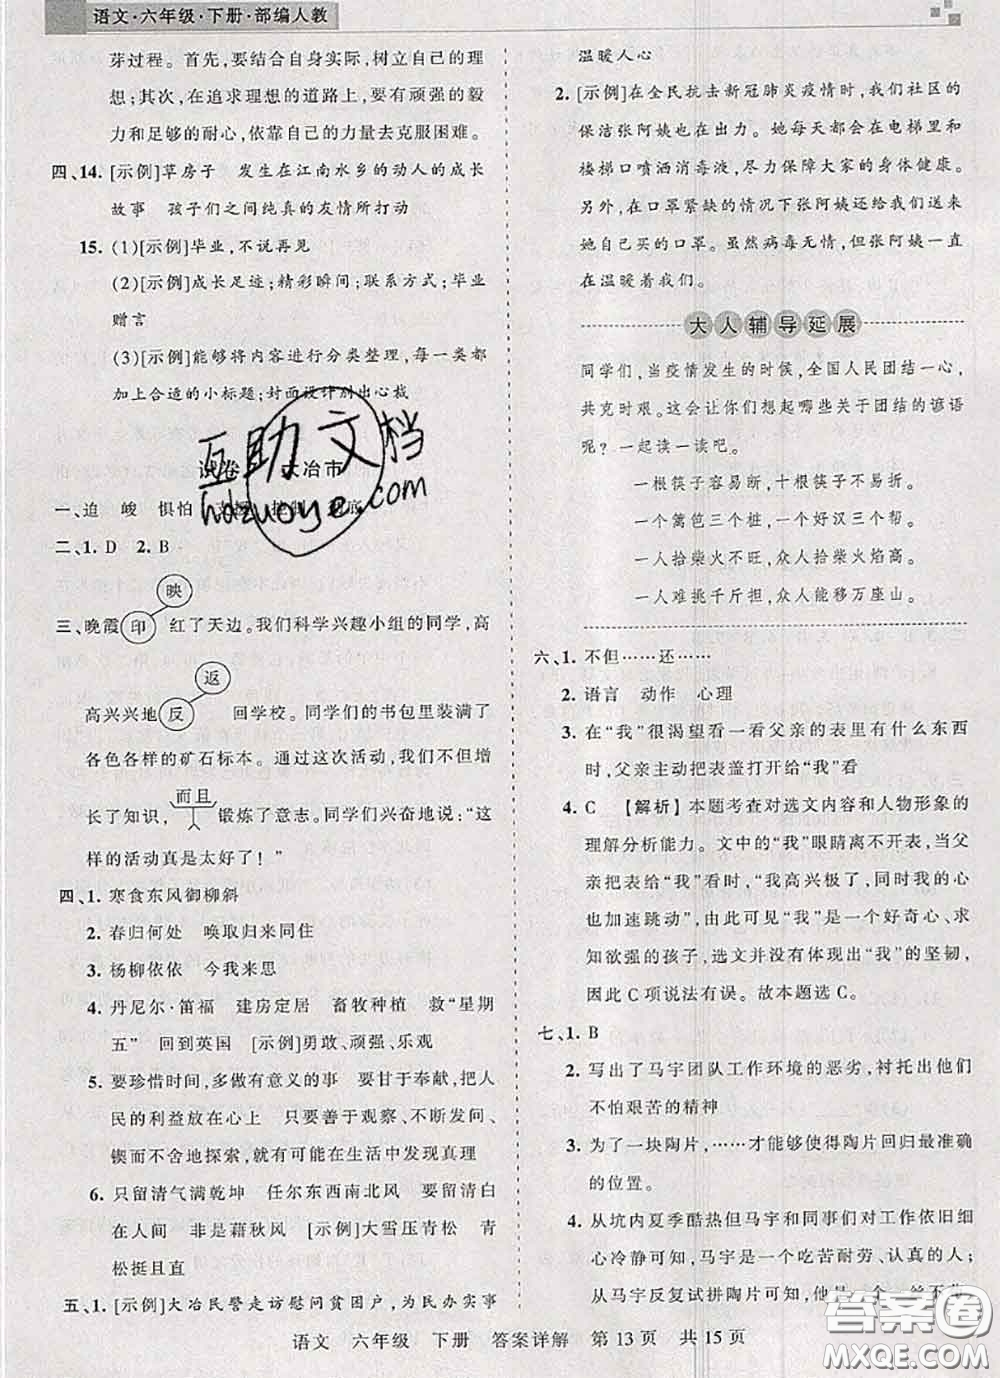 语文·六年级·下册·部编人教
芽过程。首先,要结合自身实际,树立自己的理
想;其次,在追求理想的道路上,要有顽强的毅
力和足够的耐心,依靠自己的力量去克服困难。
四、14. [示例]草房子 发生在江南水乡的动人的成长
故事 孩子们之间纯真的友情所打动
15. (1)[示例]毕业,不说再见
(2)[示例]成长足迹;精彩瞬间;联系方式;毕业
赠言
(3)[示例]能够将内容进行分类整理,每一类都
加上合适的小标题;封面设计别出心裁
试卷 大冶市
一、迫 峻 惧怕
二、1. D 2. B
映
三、晚霞 印 红了天边。我们科学兴趣小组的同学,高
返
高兴兴地 反 回学校。同学们的书包里装满了
各色各样的矿石标本。通过这次活动,我们不但增
长了知识, 而且 锻炼了意志。同学们兴奋地说:“这
样的活动真是太好了!”
四、1. 寒食东风御柳斜
2. 春归何处 唤取归来同住
3. 杨柳依依 今我来思
4. 丹尼尔·笛福 建房定居 畜牧种植 救“星期
五” 回到英国 [示例]勇敢、顽强、乐观
5. 要珍惜时间,多做有意义的事 要甘于奉献,把人
民的利益放在心上 只要善于观察、不断发问、
锲而不舍地探索,就能在现实生活中发现真理
6. 只留清气满乾坤 任尔东西南北风 要留清白
在人间 非是藉秋风 [示例]大雪压青松 青
松挺且直
五、1. [示例]大冶民警走访慰问贫困户,为民办实事
温暖人心
2. [示例]在全民抗击新冠肺炎疫情时,我们社区的
保洁张阿姨主动加班。她每天都会在电梯里和
楼梯口喷洒消毒液,尽力保障大家的身体健康。
另外,在口罩紧缺的情况下张阿姨还给我们送来
她自己买的口罩。虽然病毒无情,但张阿姨一直
在温暖着我们。
大人辅导延展
同学们,当疫情发生的时候,全国人民团结一心,
共克时艰。这会让你们想起哪些关于团结的谚语
呢?一起读一读吧。
一根筷子容易断,十根筷子不易折。
一个篱笆三个桩,一个好汉三个帮。
一人拾柴火不旺,众人拾柴火焰高。
一人难挑千斤担,众人能移万座山。
六、1. 不但……还……
2. 语言 动作 心理
3. 在“我”很渴望看一看父亲的表里有什么东西
时,父亲主动把表盖打开给“我”看
4. C 【解析】本题考查对选文内容和人物形象的
理解分析能力。文中的“我”眼睛离不开表,当父
亲把表给“我”看时,“我高兴极了,同时我的心
也加速跳动”,由此可见“我”是一个好奇心、求
知欲强的孩子,选文并没有体现出“我”的坚韧,
因此C项说法有误。故本题选C。
七、1. B
2. 写出了马宇团队工作环境的恶劣,衬托出他们
不怕艰苦的精神
3. 为了一块陶片,……才能够使得陶片回归最准确
的位置。
4. 从坑内夏季酷热但马宇和同事们对工作依旧细
心冷静可知,马宇是一个吃苦耐劳、认真的人;
从马宇反复试拼陶片可知,他是一个一丝不苟
语文 六年级 下册 答案详解 第13页 共15页
互助文档
hdzuoye.com
答案圈
MXQE.COM